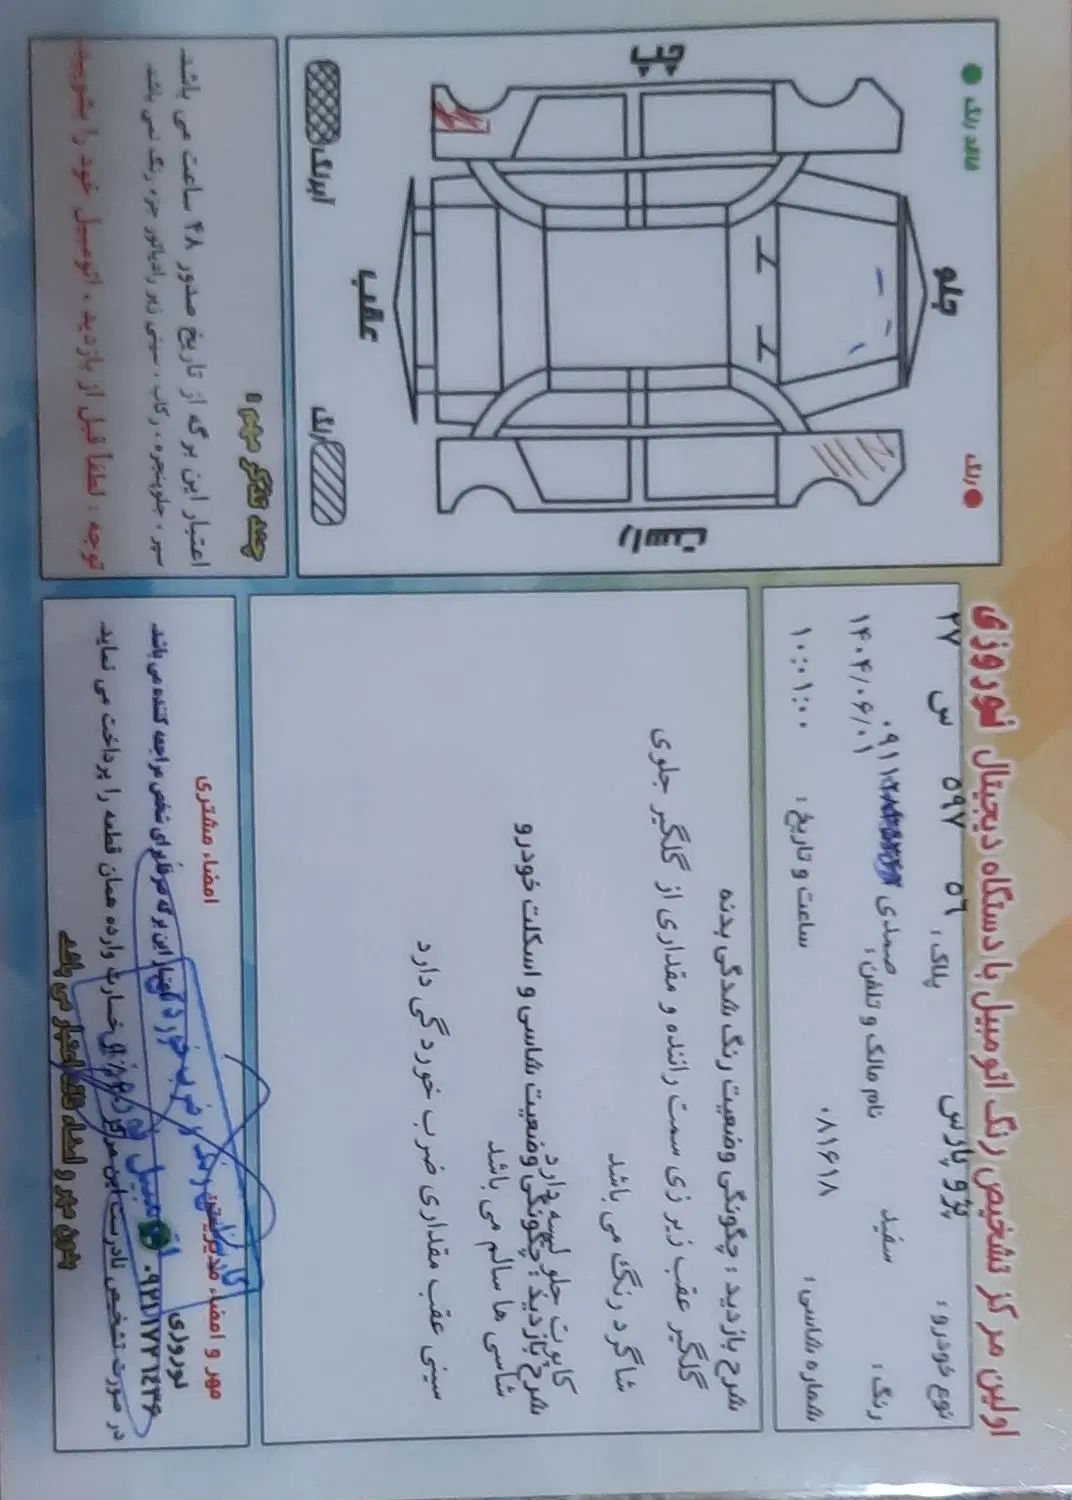 اولین مرکز تشخیص رنگ اتومبیل با دستگاه دیجیتال نوروزی
نوع خودرو : پژو پارس پلاک : ۵۶ ۵۹۷ س ۲۷
رنگ : سفید نام مالک و تلفن : صمدی ۰۹۱۱
۱۴۰۴/۰۶/۰۱
شماره شاسی : ۰۸۱۶۱۸ ساعت و تاریخ : ۱۰:۰۱:۰۰
شرح بازدید : چگونگی وضعیت رنگ شدگی بدنه
گلگیر عقب زیر زی سمت راننده و مقداری از گلگیر جلوی
شاگرد رنگ می باشد
کاپوت جلو لیسه دارد
شرح بازدید : چگونگی وضعیت شاسی و اسکلت خودرو
شاسی ها سالم می باشد
سینی عقب مقداری ضرب خوردگی دارد
مهر و امضاء مدیریت امضاء مشتری
نوروزی
اعتبار این برگه صرفا برای شخص مراجعه کننده می باشد.
در صورت تشخیص نادرست این مرکز خسارت وارده همان قطعه را پرداخت می نماید.
بدون مهر و امضاء فاقد اعتبار می باشد
فاقد رنگ
رنگ
جلو
چپ
راست
عقب
آبرنگ
رنگ
چند تذکر مهم :
اعتبار این برگه از تاریخ صدور ۴۸ ساعت می باشد
سپر ، جلوپنجره ، رکاب ، سینی زیر رادیاتور جزء رنگ نمی باشد.
توجه : لطفا قبل از بازدید ، اتومبیل خود را بشویید.